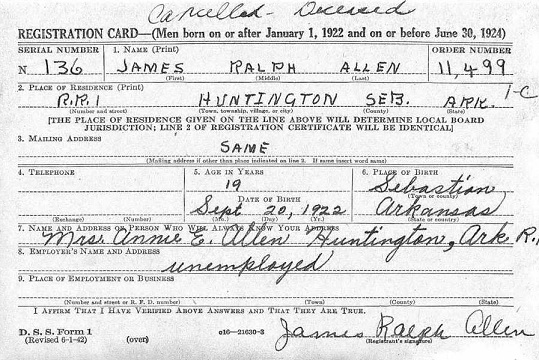 Cancelled - Deceased
REGISTRATION CARD—(Men born on or after January 1, 1922 and on or before June 30, 1924)
SERIAL NUMBER 1. NAME (Print) ORDER NUMBER
N 136 JAMES RALPH ALLEN 11,499
(First) (Middle) (Last)
2. PLACE OF RESIDENCE (Print) 1-C
R.R.1 HUNTINGTON SEB. ARK.
(Number and street) (Town, township, village, or city) (County) (State)
[THE PLACE OF RESIDENCE GIVEN ON THE LINE ABOVE WILL DETERMINE LOCAL BOARD
JURISDICTION; LINE 2 OF REGISTRATION CERTIFICATE WILL BE IDENTICAL]
3. MAILING ADDRESS
SAME
(Mailing address if other than place indicated on line 2. If same insert word same)
4. TELEPHONE 5. AGE IN YEARS 6. PLACE OF BIRTH
19 Sebastian
(Town or county)
DATE OF BIRTH
Sept 20, 1922 Arkansas
(Exchange) (Number) (Mo.) (Day) (Yr.) (State or country)
7. NAME AND ADDRESS OF PERSON WHO WILL ALWAYS KNOW YOUR ADDRESS
Mrs. Annie E. Allen Huntington, Ark. R.1
8. EMPLOYER'S NAME AND ADDRESS
unemployed
9. PLACE OF EMPLOYMENT OR BUSINESS
(Number and street or R. F. D. number) (Town) (County) (State)
I AFFIRM THAT I HAVE VERIFIED ABOVE ANSWERS AND THAT THEY ARE TRUE.
D. S. S. Form 1
(Revised 6-1-42) (over) c16—21630-2 James Ralph Allen
(Registrant's signature)